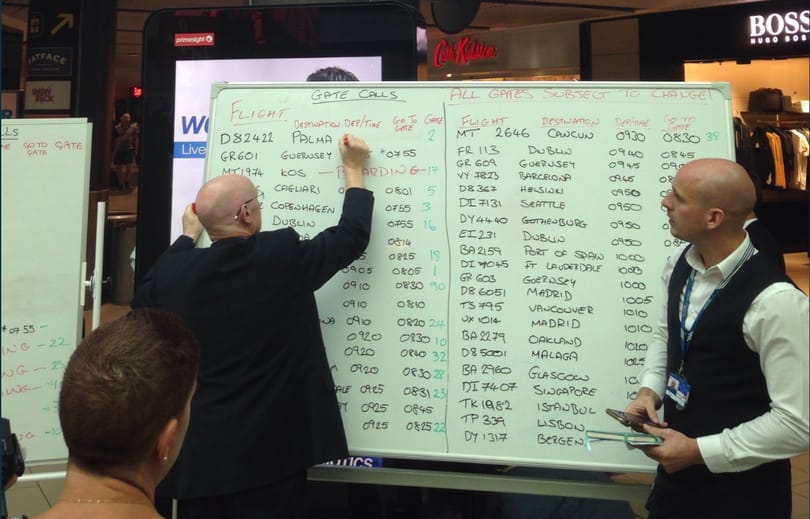 FATFACE
primesight
Cath Kidston
BOSS
HUGO BOSS
Live
GO TO GATE
GATE
*0755
GATE CALLS
ALL GATES SUBJECT TO CHANGE!
FLIGHT DESTINATION DEP/TIME GO TO GATE GATE
D82422 PALMA 2
GR601 GUERNSEY *0755
MT1974 KOS — BOARDING — 17
CAGLIARI 0801 5
COPENHAGEN 0755 3
DUBLIN 0755 16
0814
0825 18
0905 0805 1
0910 0830 90
0910 0810
0910 0820 24
0920 0830 10
0920 0840 32
0920 0830 28
0925 0831 23
0925 0845
0925 0825 22
FLIGHT DESTINATION DEP/TIME GO TO GATE
MT 2646 CANCUN 0930 0830 38
FR 113 DUBLIN 0940 0845
GR 609 GUERNSEY 0945
VY 7823 BARCELONA 0945
D8367 HELSINKI 0950
DI7131 SEATTLE 0950
DY4440 GOTHENBURG 0950
EI231 DUBLIN 0950
BA2159 PORT OF SPAIN 1000
DI7045 FT LAUDERDALE 1000
GR603 GUERNSEY
D86051 MADRID 1005
TS 795 VANCOUVER 1010
UX1014 MADRID 1010
BA2279 OAKLAND 1020
D85001 MALAGA
BA 2960 GLASGOW
DI7407 SINGAPORE
TK1982 ISTANBUL
TP 339 LISBON
DY 1317 BERGEN